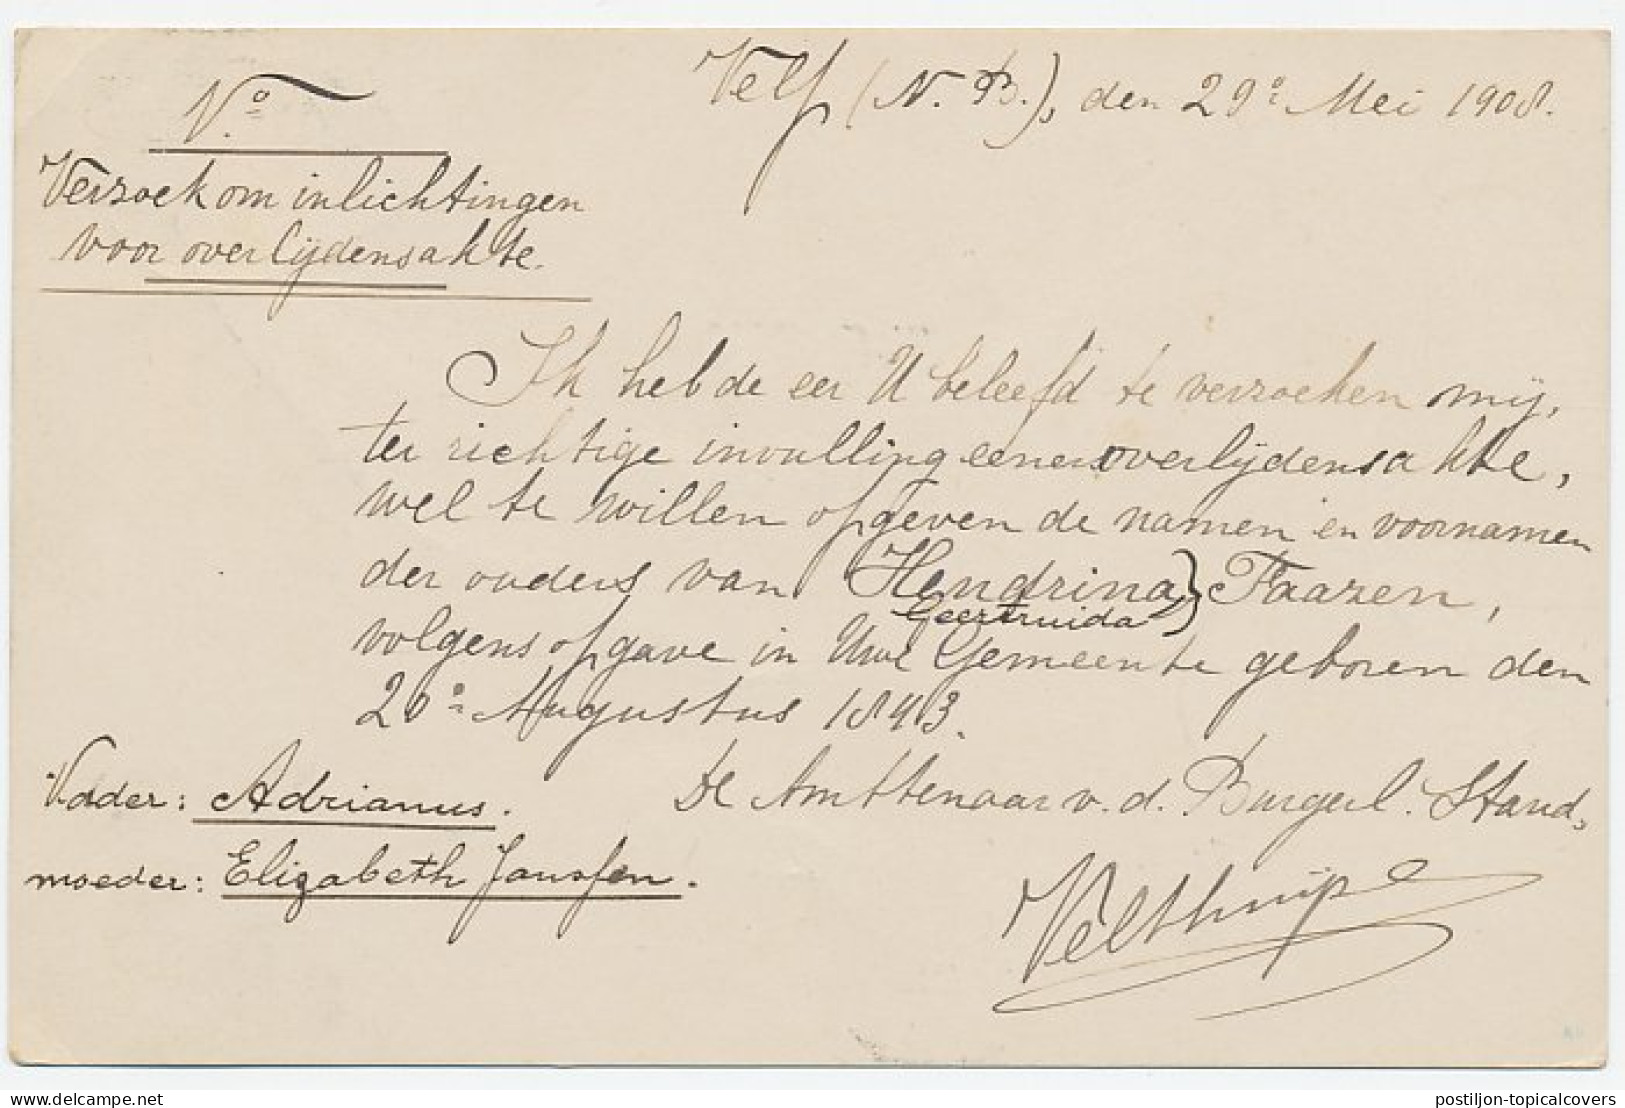 Velp (N. B.), den 29e Mei 1908.
No.
Verzoek om inlichtingen
voor overlijdensakte.
Ik heb de eer U beleefd te verzoeken mij,
ter richtige invulling eener overlijdensakte,
wel te willen opgeven de namen en voornamen
der ouders van Hendrina Faazen,
Geertruida
volgens opgave in Uwe Gemeente geboren den
20e Augustus 1843.
Vader: Adrianus.
De Ambtenaar v. d. Burgerl. Stand,
moeder: Elizabeth Janssen.
Velthuijs
postzegelsverzamelen.nl
postiljon-topicalcovers